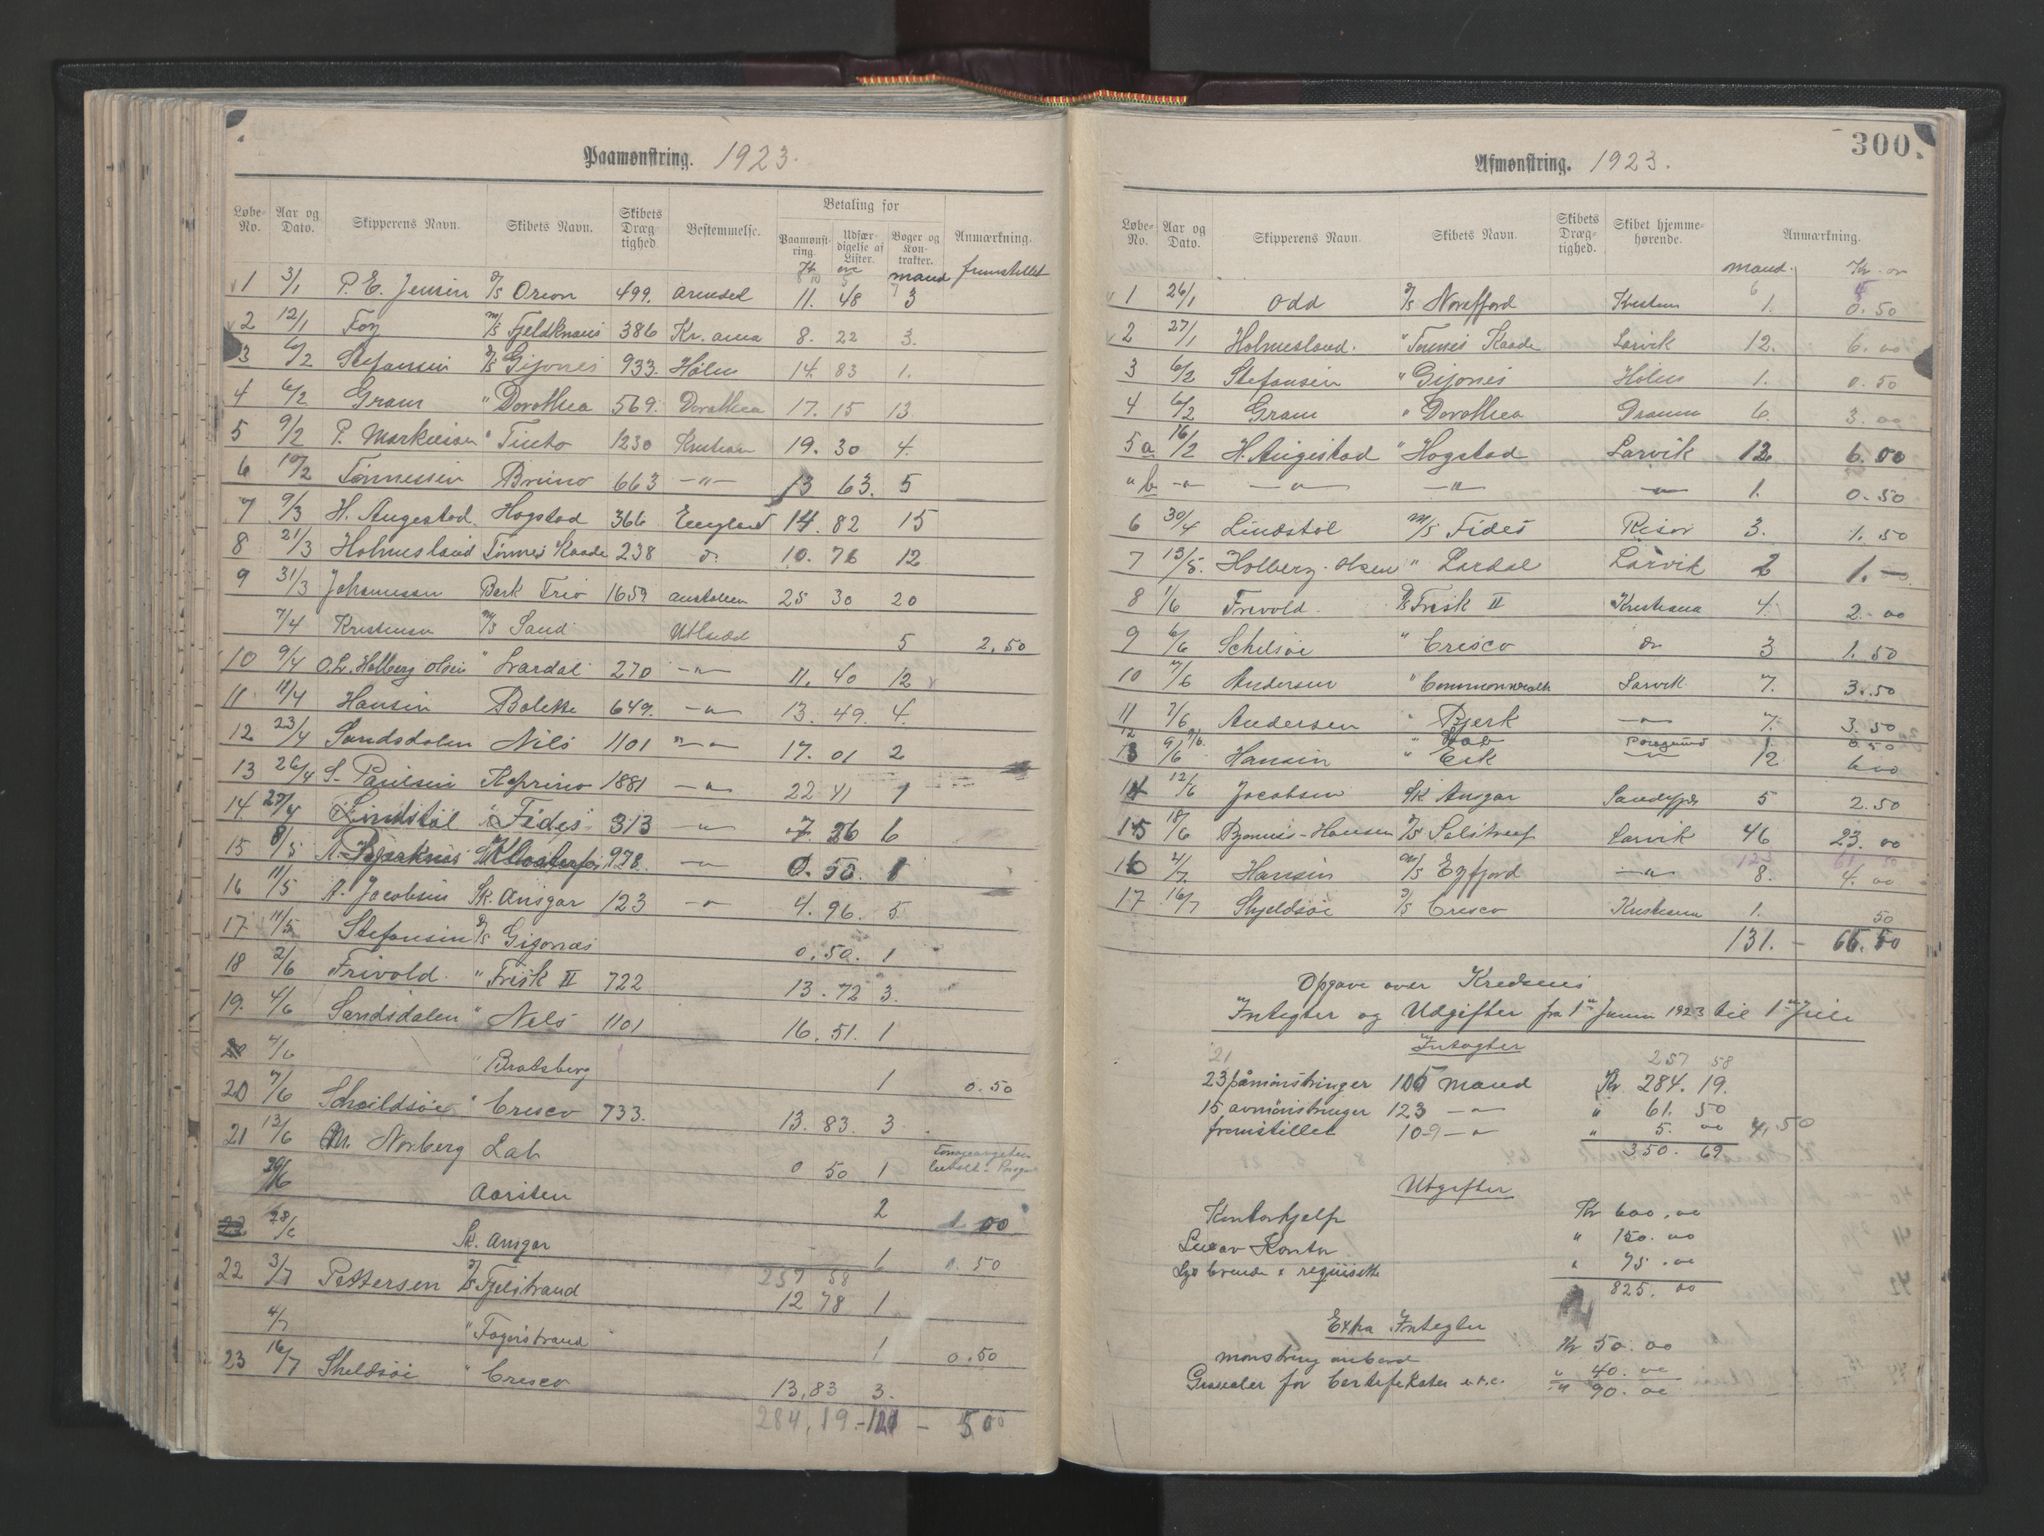 Paamønstring. 1923.
Løbe-No. Aar og Dato. Skipperens Navn. Skibets Navn. Skibets Drægtighed. Bestemmelse. Betaling for Paamønstring. Udfærdigelse af Lister. Bøger og Kontrakter. Anmærkning.
Kr øre mand fremstillet
1 3/1 P. E. Jensen D/S Orion 499. Arendal 11. 48 3
2 12/1 Foy M/S Fjeldknaus 386 Kr. ania 8. 22 3.
3 6/2 Stefansen D/S Gijones 933. Holm 14. 83 1.
4 6/2 Gram " Dorothea 569. Dorothea 17. 15 13
5 9/2 P. Markusson " Tinto 1230 19. 30 4.
6 10/2 Tønnessen Bruno 663 —"— 13 63. 5
7 9/3 H. Augestad. Hogstad 366 England 14. 82 15
8 21/3 Holmesland Tønnes Kaade 238 do 10. 76 12
9 31/3 Johannesen Bark Trio 1659 25 30 20
7/4 Kristensen M/S Sand 5 2.50
10 9/4 O. L. Holberg Olsen " Lardal 270 —"— 11. 40 12
11 11/4 Hansen Bolette 649. —"— 13. 49. 4.
12 23/4 Sandsdalen Nils 1101 —"— 17. 01 2
13 26/4 S. Paulsen 1881 —"— 22 41 1
14 27/4 Lindstøl Fides 313 —"— 7 26 6
15 8/5 A. Bjerknes 978. —"— 0. 50. 1
16 11/5 A. Jacobsen Sk. Ansgar 123 —"— 4. 96. 5
17 11/5 Stefansen D/S Gijonæs 0. 50. 1
18 2/6 Frivold. " Frisk II 722 13. 72 3.
19. 4/6 Sandsdalen " Nils 1101 16. 51. 1
4/6 " Bratsberg 1 0.50
20 7/6 Schieldsøe " Cresco 733. 13. 83. 3
21 13/6 M. Norberg Lab 0 50 1
20/6 Aorsten 2 1.00
28/6 Sk. Ansgar 1 0.50
257 58
22 3/7 Pettersen D/S Fjelstrand 12 78 1
4/7 " Fagerstrand 1 0.50
23 16/7 Skeldsøe " Cresco 13,83 3.
284,19.-121 — 5.00
300.
Afmønstring. 1923.
Løbe-No. Aar og Dato. Skipperens Navn. Skibets Navn. Skibets Drægtighed. Skibet hjemmehørende. Anmærkning.
mand. Kr. ør
1 26/1 Odd D/S Noreffjord 1. 0.50
2 27/1 Holmesland. " Tønnes Kaade Larvik 12. 6.00
3 6/2 Stefansen " Gijones Holm 1. 0.50
4 6/2 Gram " Dorothea Dramm 6. 3.00
5a 16/2 H. Augestad " Hogstad Larvik 12 6.00
" b —"— —"— —"— —"— 1. 0.50
6 30/4 Lindstøl M/S Fides Risør 3. 1.50
7 13/5. Holberg-Olsen " Lardal Larvik 2 1.—
8 1/6 Frivold. D/S Frisk II Kristiania 4. 2.00
9 6/6 Schelsøe " Cresco do 3 1.50
10 7/6 Andersen " Commonwealth Larvik. 7. 3.50
11 7/6 Andersen " Bjerk —"— 7. 3.50
12 9/6 " Lab Porsgrund 1. 0.50
13 9/6 Hansen " Eik —"— 12 6.00
14 12/6 Jacobsen Sk Ansgar Sandefj 5 2.50
15 18/6 Bjønnes-Hansen D/S Solstreif Larvik 46 23.00
123 61 50
16 2/7 Hansen M/S Eyfjord —"— 8. 4.00
17 16/7 Skjeldsøe D/S Cresco Kristiania 1. 50
131. — 65.50
Opgave over Kredsens
Integter og Udgifter fra 1ste Januar 1923 til 1ste Juli
Intægter
21 257 58
23 påmönstringer 105 mand Kr. 284. 19.
15 avmönstringer 123 —"— " 61. 50
fremstillet 109 —"— " 5. 00 4,50
350. 69
Utgifter
Kontorhjelp Kr 600.00
Lye av Kontor " 150.00
Lys brende & requisitte " 75.00
825.00
Extra Integter
mönstring ombord Kr 50.00
for Certifikater e.t.c. " 40.00
" 90.00